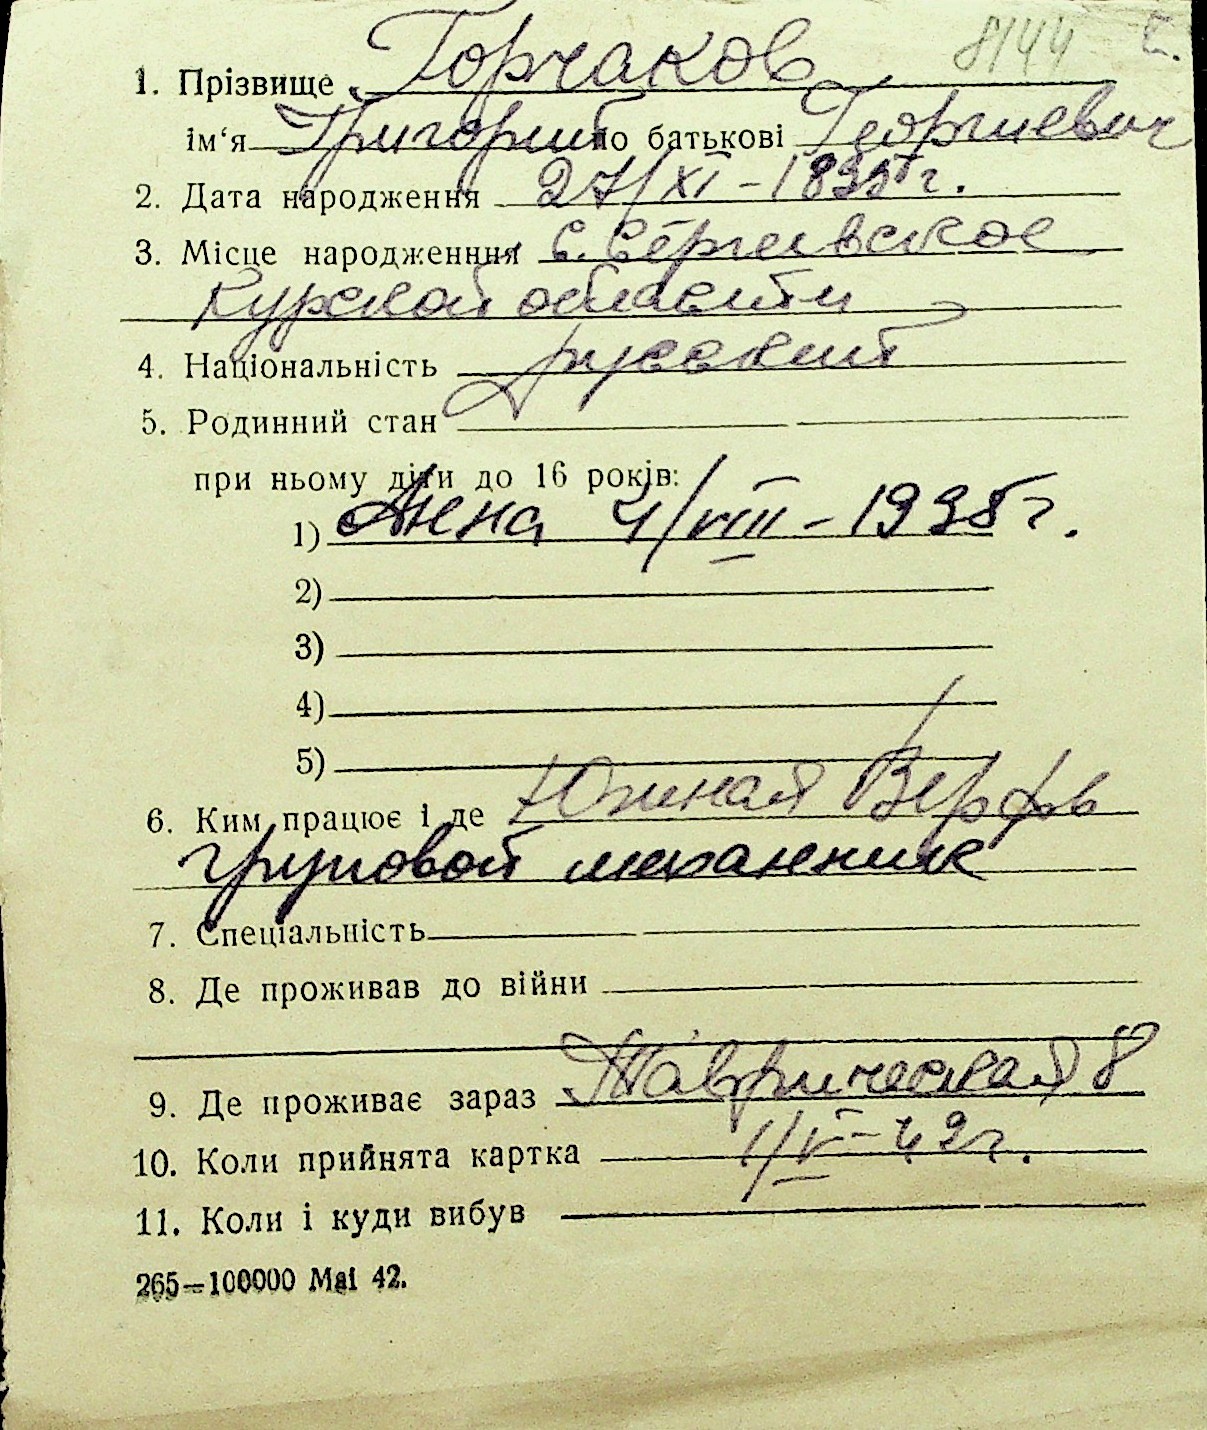 8144
1. Прізвище Горчаков
ім‘я Григорий по батькові Георгиевич
2. Дата народження 27/XI - 1895 г.
3. Місце народженння с. Сергиевское
Курской области
4. Національність русский
5. Родинний стан
при ньому діти до 16 років:
1) Анна 4/VIII - 1938 г.
2)
3)
4)
5)
6. Ким працює і де Южная Верфь
груповой механник
7. Спеціальність
8. Де проживав до війни
9. Де проживає зараз Таврическая 8
10. Коли прийнята картка 1/V - 42 г.
11. Коли і куди вибув
265—100000 Mai 42.